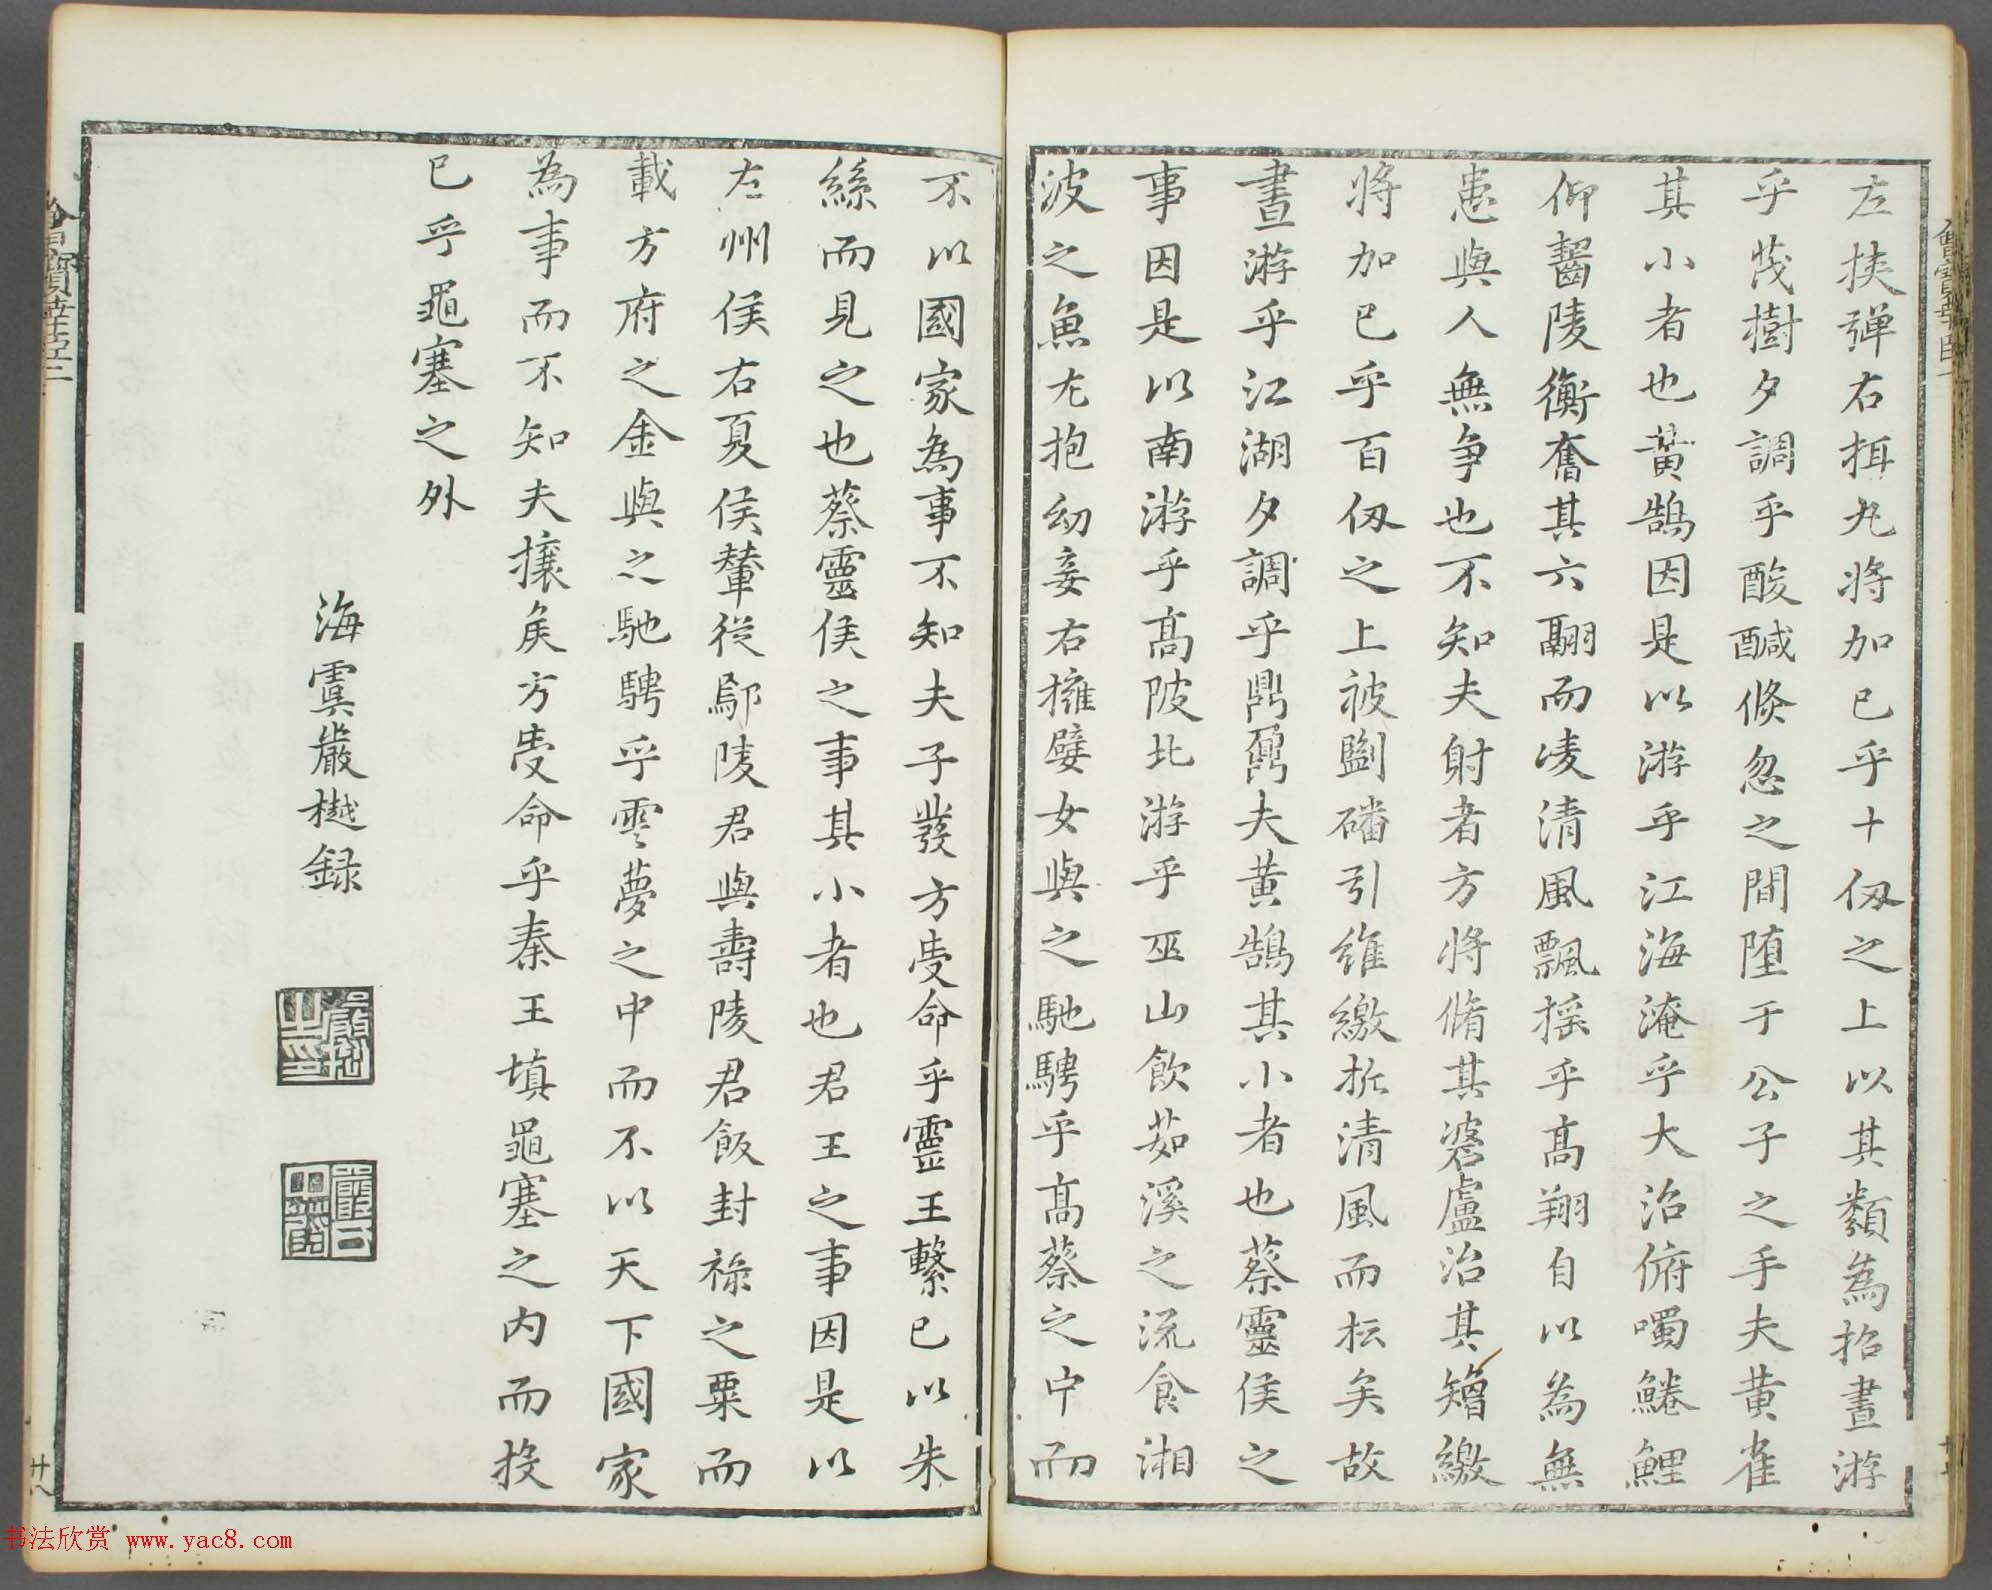 左挾彈右挕丸將加己乎十仭之上以其類為招晝游
乎茂樹夕調乎酸醎倏忽之間墮于公子之手夫黄雀
其小者也黄鵠因是以游乎江海淹乎大沼俯噣鰷鯉
仰齧陵衡奮其六翮而凌清風飄揺乎髙翔自以為無
患與人無爭也不知夫射者方將脩其碆盧治其矰繳
將加己乎百仭之上被劉磻引維繳折清風而抎矣故
晝游乎江湖夕調乎鼎鼐夫黄鵠其小者也蔡靈侯之
事因是以南游乎髙陂北游乎巫山飲茹溪之流食湘
波之魚尤抱幼妾右擁嬖女與之馳騁乎髙蔡之中而
不以國家為事不知夫子發方受命乎靈王繫己以朱
絲而見之也蔡靈侯之事其小者也君王之事因是以
左州侯右夏侯輦從鄢陵君與壽陵君飯封祿之粟而
載方府之金與之馳騁乎雲夢之中而不以天下國家
為事而不知夫攘矦方受命乎秦王填黽塞之内而投
已乎黽塞之外
海虞嚴樾録
廿八
书法欣赏 www.yac8.com